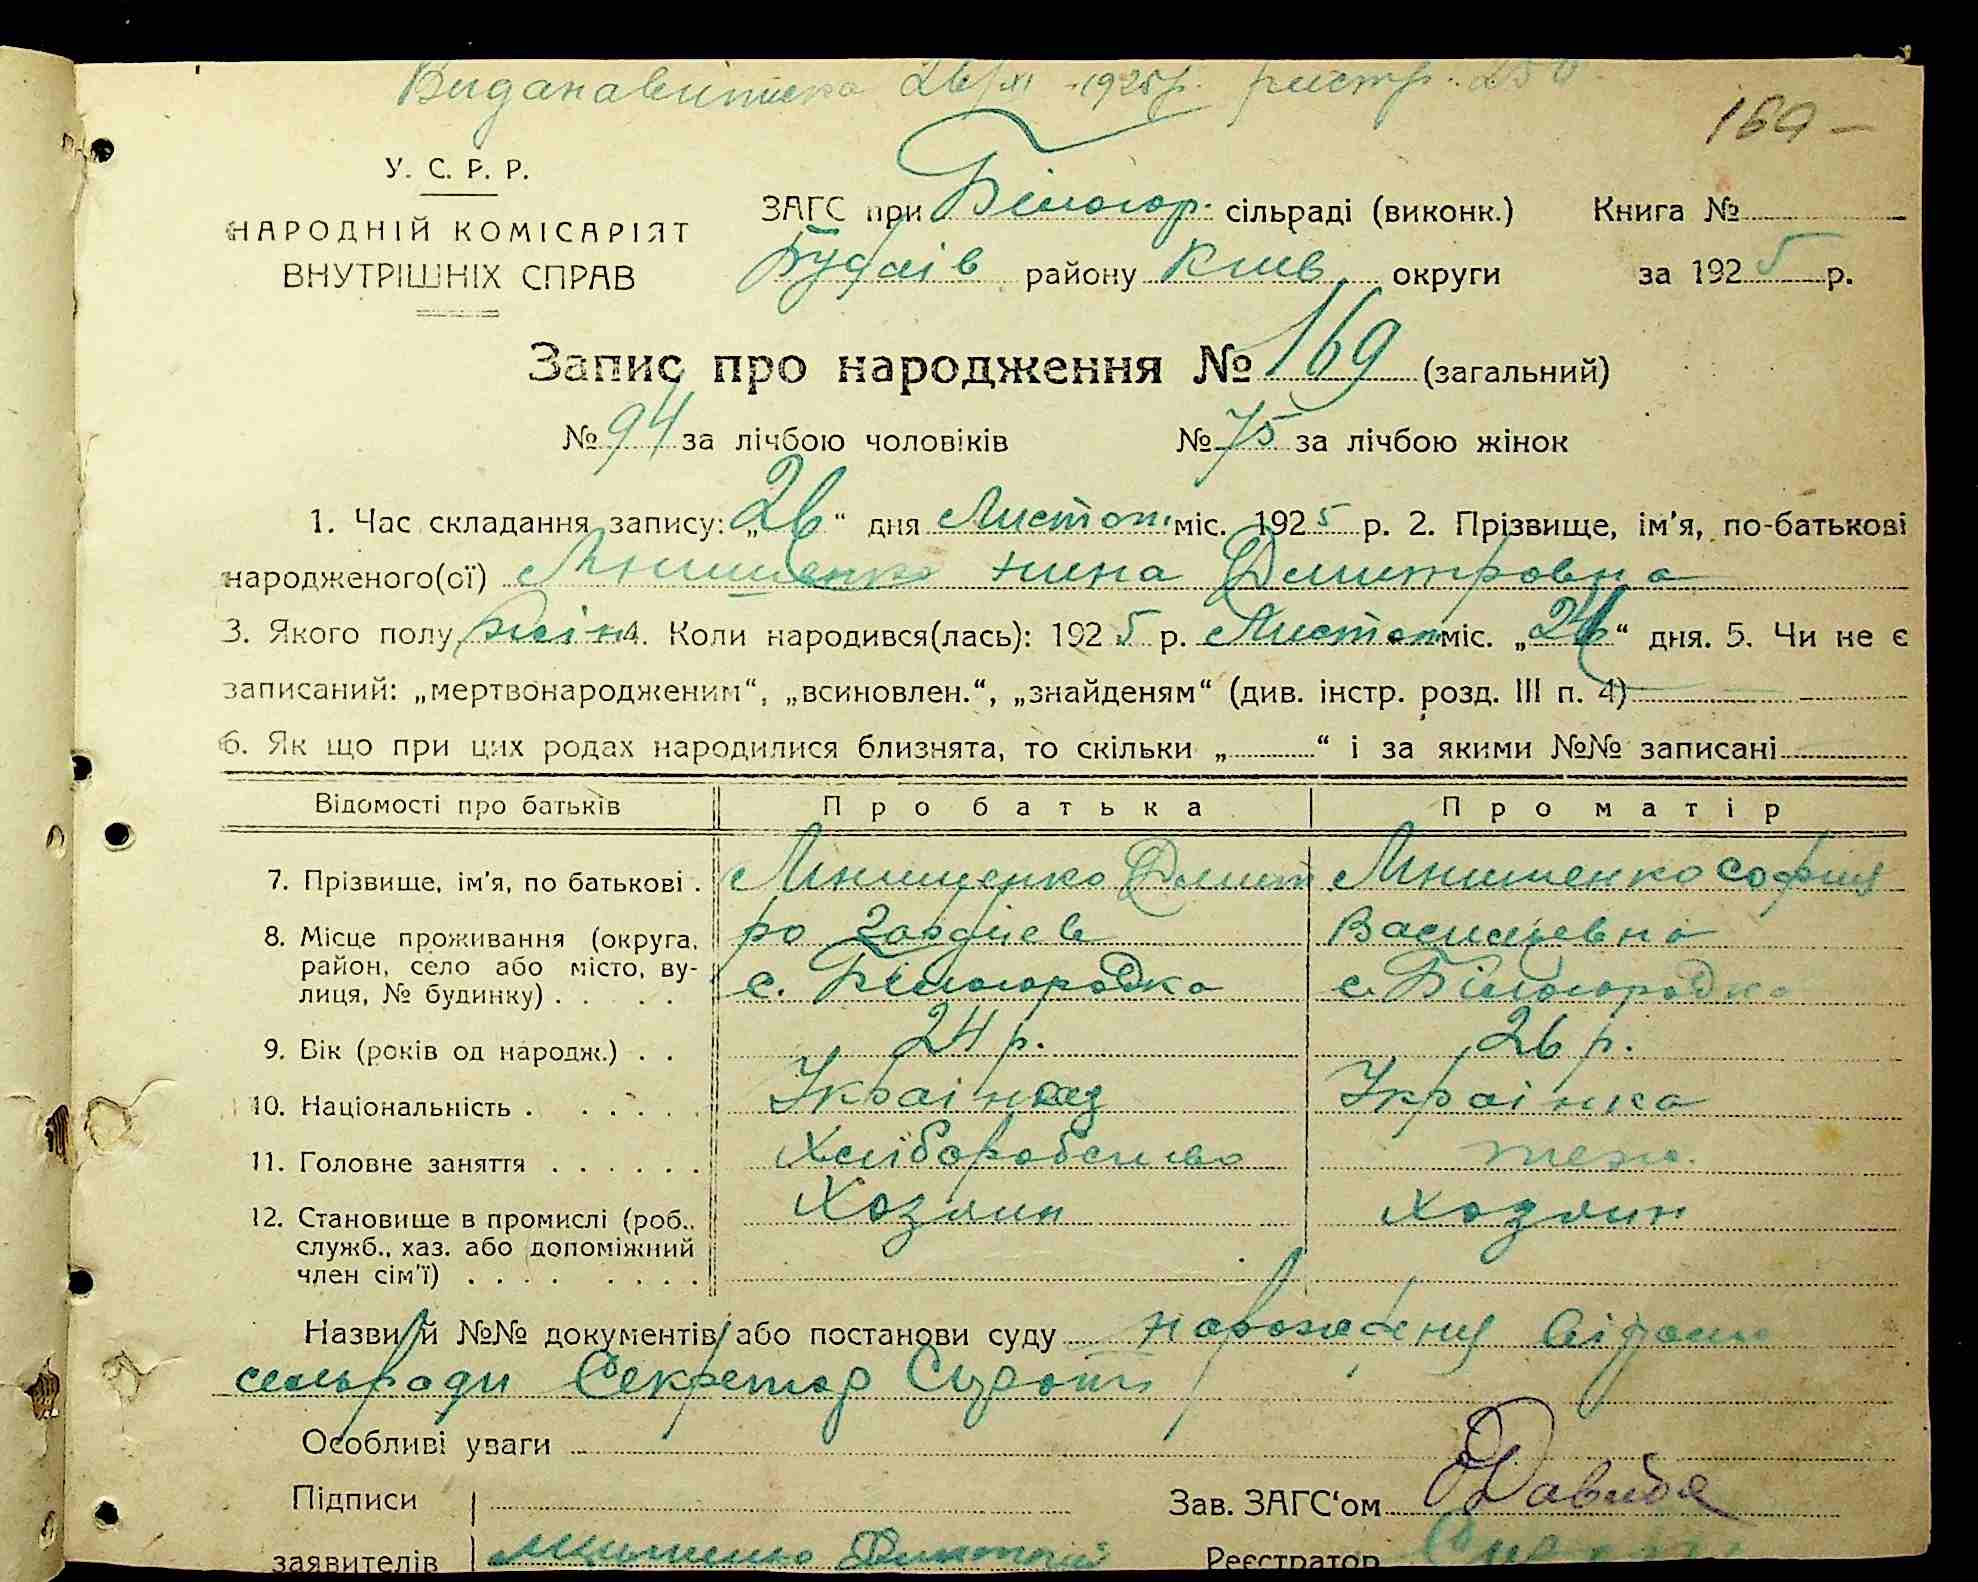 Видана виписка 26/XI - 1925р. реєстр.
169 -
У. С. Р. Р.
НАРОДНІЙ КОМІСАРІЯТ
ВНУТРІШНІХ СПРАВ
ЗАГС при Білогор. сільраді (виконк.) Книга №
Будаїв району Київ округи за 1925 р.
Запис про народження № 169 (загальний)
№ 94 за лічбою чоловіків № 75 за лічбою жінок
1. Час складання запису: „26“ дня Листоп. міс. 1925 р. 2. Прізвище, ім'я, по-батькові
народженого(ої) Мнишенко Нина Дмитровна
3. Якого полу Жін 4. Коли народився(лась): 1925 р. Листоп міс. „ “ дня. 5. Чи не є
записаний: „мертвонародженим“, „всиновлен.“, „знайденям“ (див. інстр. розд. III п. 4)
6. Як що при цих родах народилися близнята, то скільки „ “ і за якими №№ записані
Відомості про батьків Про батька Про матір
7. Прізвище, ім'я, по батькові . Мнишенко Дмит Мнишенко София
8. Місце проживання (округа, ро Гордиев Васильевна
район, село або місто, ву- с. Білогородка с. Білогородка
лиця, № будинку) . . . .
9. Вік (років од народж.) . . 24 р. 26 р.
10. Національність . . . . . . Українец Українка
11. Головне заняття . . . . . . Хліборобство теж.
12. Становище в промислі (роб., Хозяин Хозяин
служб., хаз. або допоміжний
член сім'ї) . . . . . . . .
Назви й №№ документів або постанови суду
сельради Секретар Сирота
Особливі уваги
Підписи Зав. ЗАГС'ом Давида
заявителів Мнишенко Дмитрий Реєстратор